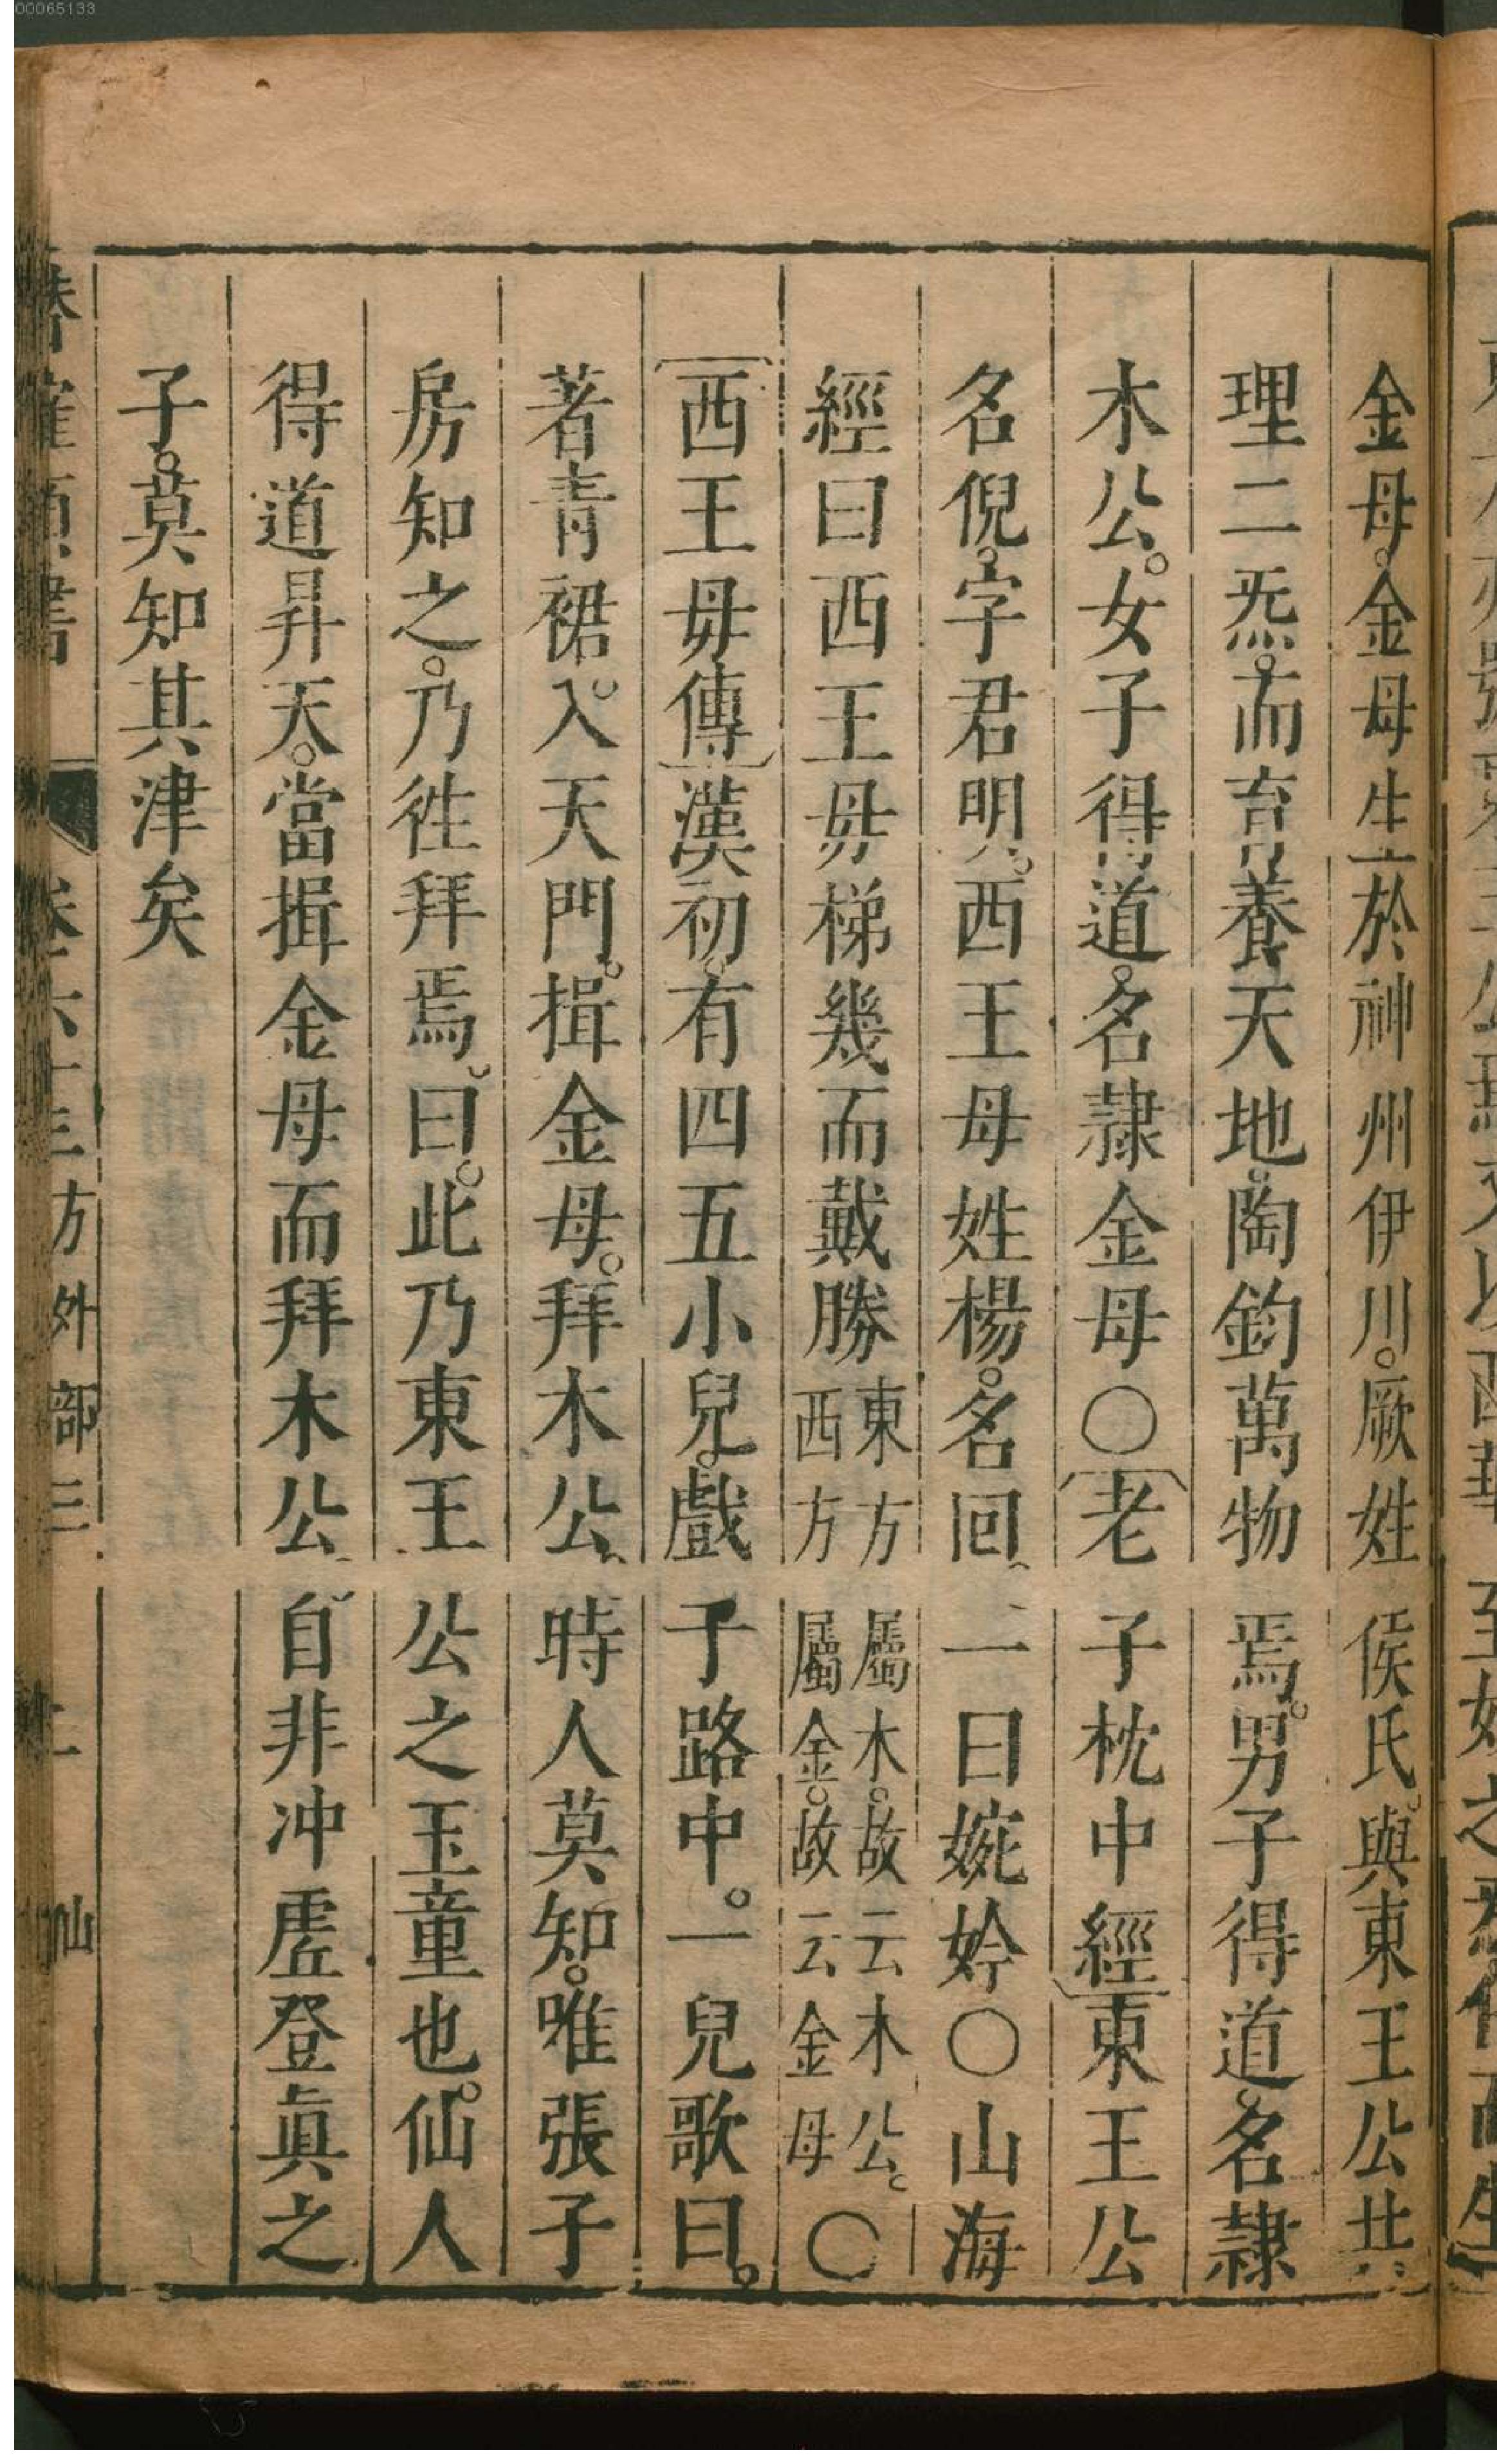 00065133
金母金母生於神州伊川厥姓侯氏與東王公共
理二炁而育養天地陶鈞萬物焉男子得道名隷
木公女子得道名隷金母〇老子枕中經東王公
名倪字君明西王母姓楊名回一曰婉妗〇山海
經曰西王毋梯幾而戴勝東方屬木故云木公西方屬金故云金母〇
西王毋傳漢初有四五小兒戲于路中一兒歌曰
著青裙入天門揖金母拜木公時人莫知唯張子
房知之乃徃拜焉曰此乃東王公之玉童也仙人
得道昇天當揖金母而拜木公自非冲虗登眞之
子莫知其津矣
卷六十三方外部三 二 仙